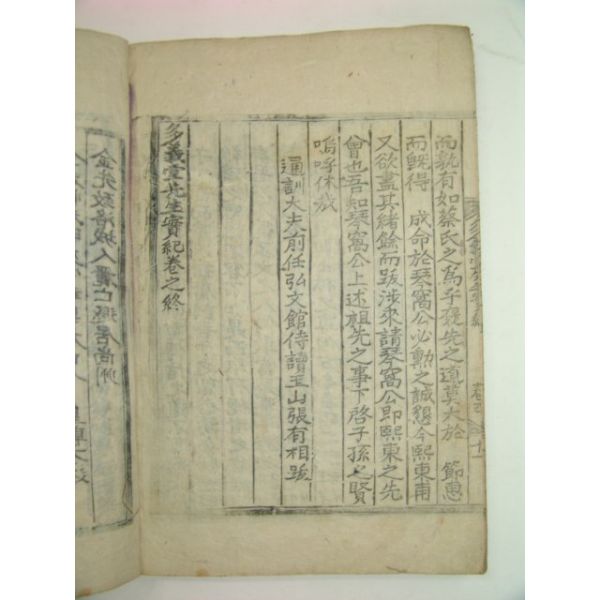 而孰有如蔡氏之爲乎發先之道莫大於 節惠
而旣得 成命於琴窩公必勳之誠懇今熙東甫
又欲盡其緖餘而跋涉來請琴窩公卽熙東之先
曾也吾知琴窩公上述祖先之事下啓子孫之賢
嗚呼休哉
通訓大夫前任弘文館侍讀玉山張有相跋
多義堂先生實紀卷之終
金先致洛城人麗亡退居尙州